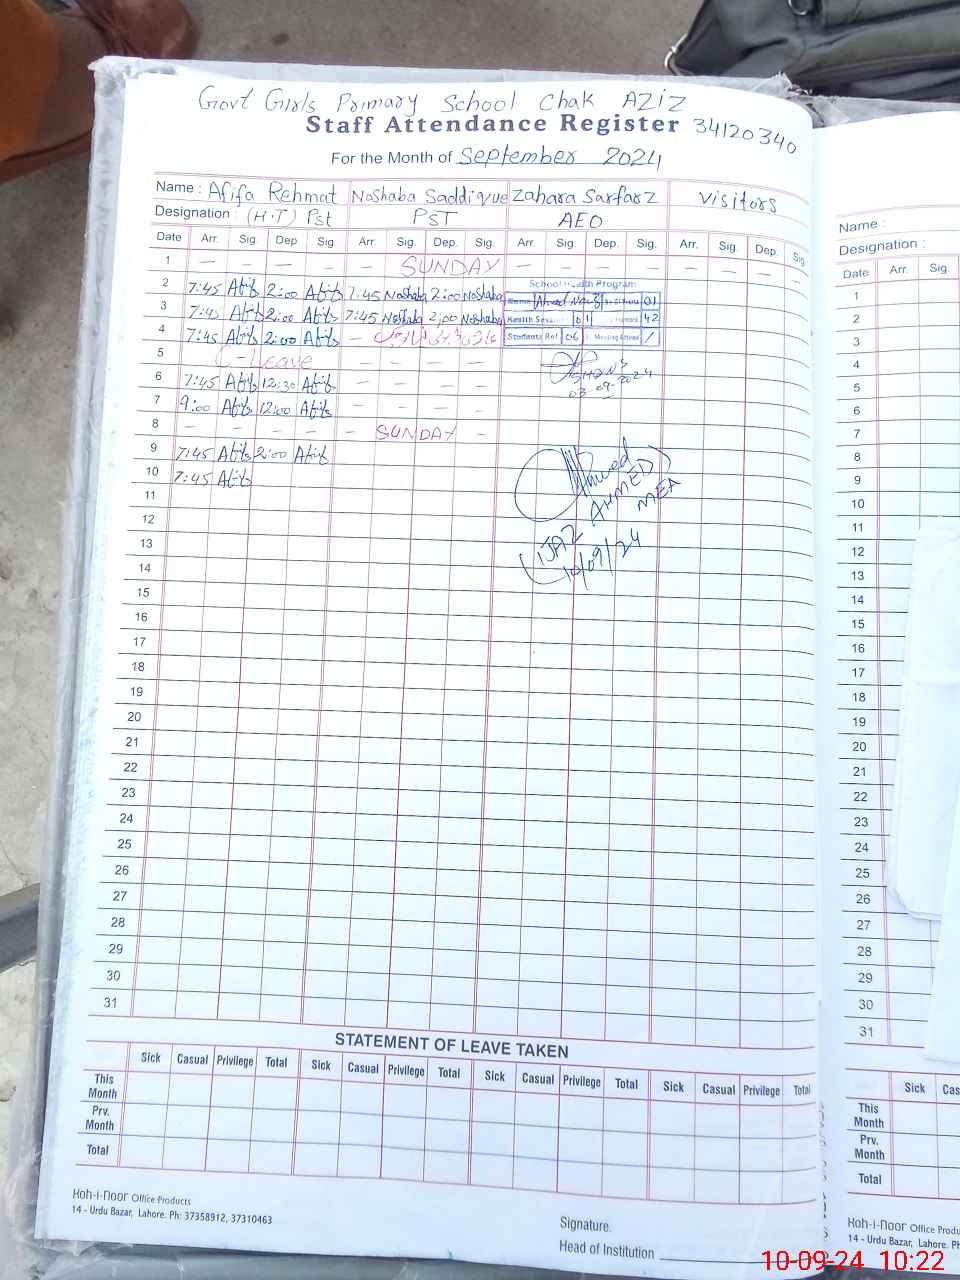 Govt Girls Primary School Chak Aziz
Staff Attendance Register 34120340
For the Month of September 2024
Name : Afifa Rehmat Noshaba Saddique Zahara Sarfarz Visitors
Designation : (H.T) Pst PST AEO
Date Arr. Sig. Dep. Sig. Arr. Sig. Dep. Sig. Arr. Sig. Dep. Sig. Arr. Sig. Dep. Sig.
1 — — — — — SUNDAY — — — — — — — —
2 7:45 Afifa 2:00 Afifa 7:45 Noshaba 2:00 Noshaba
School Health Program
3 7:45 Afifa 2:00 Afifa 7:45 Noshaba 2:00 Noshaba
01
Health 01 42
4 7:45 Afifa 2:00 Afifa —
Students Ref 06
5 C-Leave — — — —
SH&NS
03-09-2024
6 7:45 Afifa 12:30 Afifa — — — —
7 9:00 Afifa 12:00 Afifa — — — —
8 — — — — — SUNDAY —
9 7:45 Afifa 2:00 Afifa
10 7:45 Afifa
Ahmed
AHMED
MEA
IJAZ
10/09/24
11
12
13
14
15
16
17
18
19
20
21
22
23
24
25
26
27
28
29
30
31
STATEMENT OF LEAVE TAKEN
Sick Casual Privilege Total Sick Casual Privilege Total Sick Casual Privilege Total Sick Casual Privilege Total
This Month
Prv. Month
Total
Koh-i-Noor Office Products
14 - Urdu Bazar, Lahore. Ph: 37358912, 37310463
Signature.
Head of Institution
Name :
Designation :
Date Arr. Sig.
1
2
3
4
5
6
7
8
9
10
11
12
13
14
15
16
17
18
19
20
21
22
23
24
25
26
27
28
29
30
31
Sick
This Month
Prv. Month
Total
Koh-i-Noor Office
14 - Urdu Bazar, Lahore.
10-09-24 10:22